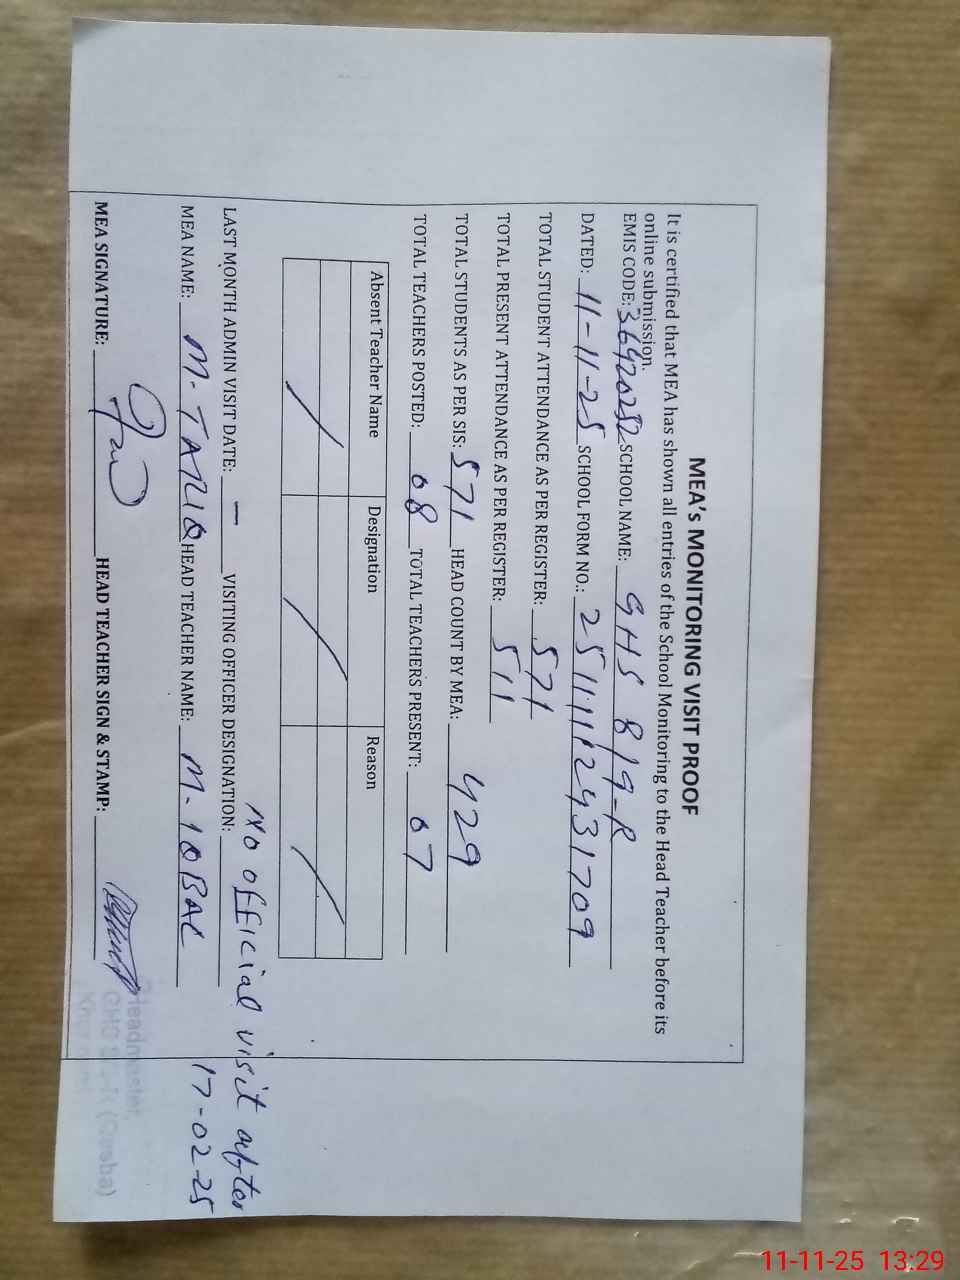 MEA's MONITORING VISIT PROOF
It is certified that MEA has shown all entries of the School Monitoring to the Head Teacher before its
online submission.
EMIS CODE: 36420252 SCHOOL NAME: GHS 8/9-R
DATED: 11-11-25 SCHOOL FORM NO.: 25111112431709
TOTAL STUDENT ATTENDANCE AS PER REGISTER: 571
TOTAL PRESENT ATTENDANCE AS PER REGISTER: 511
TOTAL STUDENTS AS PER SIS: 571 HEAD COUNT BY MEA: 429
TOTAL TEACHERS POSTED: 08 TOTAL TEACHERS PRESENT: 07
Absent Teacher Name Designation Reason
No official visit after
17-02-25
LAST MONTH ADMIN VISIT DATE: – VISITING OFFICER DESIGNATION:
MEA NAME: M. TARIQ HEAD TEACHER NAME: M. IQBAL
MEA SIGNATURE: HEAD TEACHER SIGN & STAMP:
Headmaster
GHS (Qasba)
11-11-25 13:29